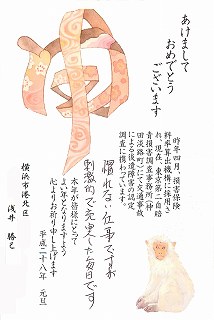 あけまして
おめでとう
ございます
昨年四月、損害保険
料率算出機構に採用さ
れ、現在、東京第二自賠
責損害調査事務所（神
田淡路町）にて交通事故
による後遺障害の認定
調査に携わっています。
慣れない仕事ですが
刺激的で充実した毎日です
本年が皆様にとって
よい年となりますよう
心よりお祈り申し上げます
平成二十八年　元旦
横浜市港北区
浅井　勝己